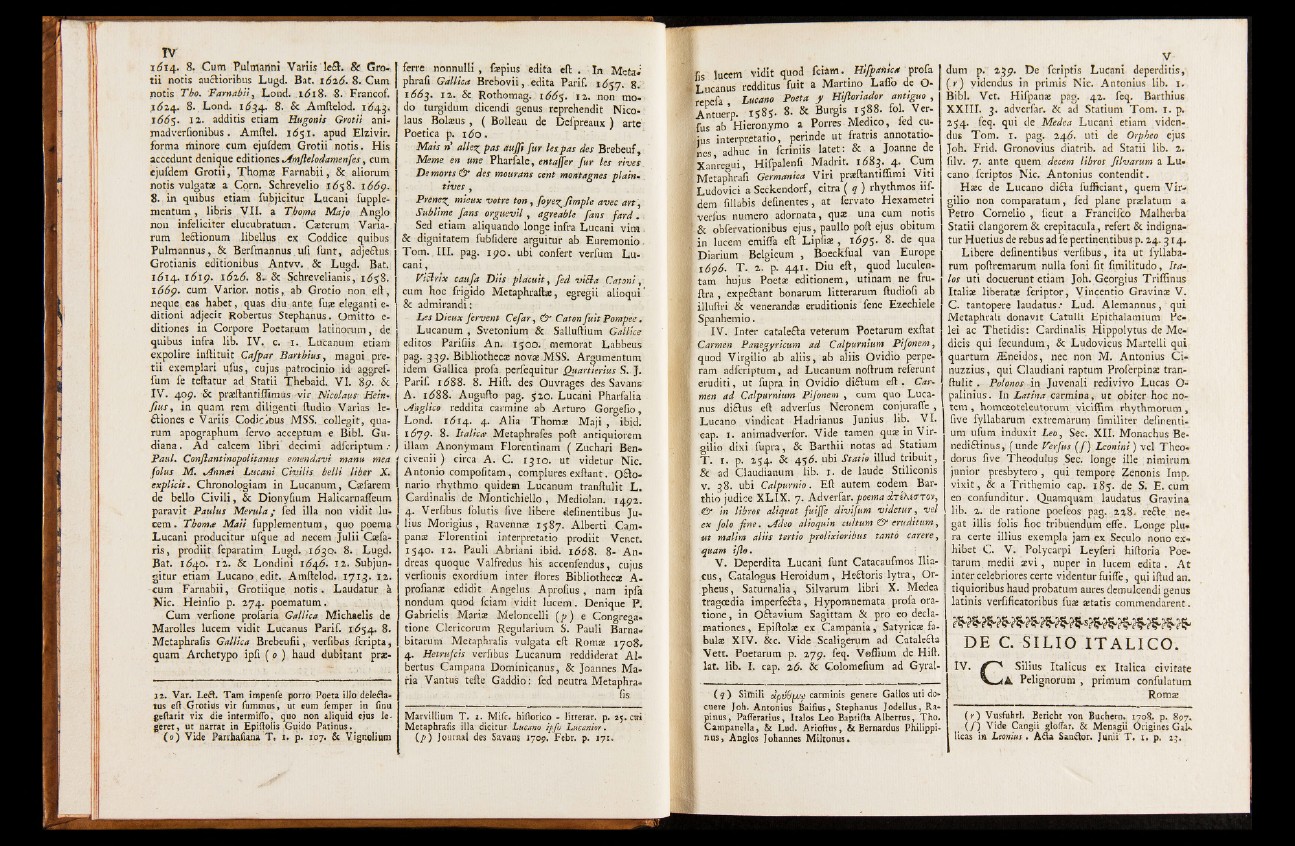 IV
1614. 8. Cum Pulmanni Variis lect. & Gro-
tii notis auctioribus Lugd. Bat. 1626. 8. Cum
notis Tho. Farnabii, Lond. 1618. 8. Francof.
1624. 8. Lond. 1634. 8. & Amstelod. 1643.
1665. 12. additis etiam Hugonis Grotii ani-
madversionibus. Amstel. 1651. apud Elzivir.
forma minore cum ejusdem Grotii notis. His
accedunt denique editiones Amstelodamenses, cum
ejusdem Grotii, Thomæ Farnabii, & aliorum
notis vulgatæ a Corn. Schrevelio 1658. 1669.
8. in quibus etiam subjicitur Lucani supple-
mentum, libris VII. a Thoma Majo Anglo
non infeliciter elucubratum. Cæterum Varia-
rum lectionum libellus ex Coddice quibus
Pulmannus, & Bersmannus usi sunt, adjectus
Grotianis editionibus Antvv. & Lugd. Bat.
1614. 1619. 1626. 8. & Schrevelianis, 1658.
1669. cum Varior. notis, ab Grotio non est,
neque eas habet, quas diu ante suæ eleganti e-
ditioni adjecit Robertus Stephanus. Omitto e-
ditiones in Corpore Poetarum latinorum, de
quibus infra lib. IV. c. 1. Lucanum etiam
expolire instituit Caspar Barthius, magni pre-
tii exemplari usus, cujus patrocinio id aggres-
sum se testatur ad Statii Thebaid. VI. 89. &
IV. 409. & præstantissimus vir Nicolaus Hein-
sius, in quam rem diligenti studio Varias le-
ctiones e Variis Codicibus MSS. collegit, qua-
rum apographum servo acceptum e Bibl. Gu-
diana. Ad calcem libri decimi adscriptum:
Paul. Constantinopolitanus emendavi manu mea
solus M. Annæi Lucani Civilis belli liber X.
explicit. Chronologiam in Lucanum, Cæsarem
de bello Civili, & Dionysium Halicarnasseum
paravit Paulus Merula; sed illa non vidit lu-
cem. Thomæ Maii supplementum, quo poema
Lucani producitur usque ad necem Julii Cæsa-
ris, prodiit separatim Lugd. 1630. 8. Lugd.
Bat. 1640. 12. & Londini 1646. 12. Subjun-
gitur etiam Lucano edit. Amstelod. 1713. 12.
cum Farnabii, Grotiique notis. Laudatur à
Nic. Heinsio p. 274. poematum.
Cum versione prosaria Gallica Michaelis de
Marolles lucem vidit Lucanus Paris. 1654. 8.
Metaphrasis Gallica Brebeufii, versibus scripta,
quam Archetypo ipsi (o) haud dubitant præ-
12. Var. Lect. Tam impense porro Poeta illo delecta-
tus est Grotius vir summus, ut eum semper in sinu
gestarit vix die intermisso, quo non aliquid ejus le-
geret, ut narrat in Epistolis Guido Patinus.
(o) Vide Parrhasiana T. 1. p. 107. & Vignolium
ferre nonnulli, sæpius edita est. In Meta-
phrasi Gallica Brebovii, edita Paris. 1657. 8.
1663. 12. & Rothomag. 1665. 12. non mo-
do turgidum dicendi genus reprehendit Nico-
laus Bolæus, (Bolleau de Despreaux) arte
Poetica p. 160.
Mais n' allez pas aussi sur les pas des Brebeuf,
Meme en une Pharsale, entasser sur les rives
De morts & des mourans cent montagnes plain-
tives,
Prenez mieux votre ton, soyez simple avec art,
Sublime sans orguevil, agreable sans fard.
Sed etiam aliquando longe infra Lucani vim
& dignitatem subsidere arguitur ab Euremonio
Tom. III. pag. 190. ubi confert versum Lu-
cani,
Victrix causa Diis placuit, sed victa Catoni,
cum hoc frigido Metaphrastæ, egregii alioqui
& admirandi:
Les Dieux servent Cesar, & Caton suit Pompee.
Lucanum, Svetonium & Sallustium Gallice
editos Parisiis An. 1500. memorat Labbeus
pag. 339. Bibliothecæ novæ MSS. Argumentum
idem Gallica prosa persequitur Quartierius S. J.
Paris. 1688. 8. Hist. des Ouvrages des Savans
A. 1688. Augusto pag. 520. Lucani Pharsalia
Anglico reddita carmine ab Arturo Gorgesio,
Lond. 1614. 4. Alia Thomæ Maji, ibid.
1679. 8. Italicæ Metaphrases post antiquiorem
illam Anonymam Florentinam (Zuchari Ben-
civenii) circa A. C. 1310. ut videtur Nic.
Antonio compositam, complures exstant. Octo-
nario rhythmo quidem Lucanum transtulit L.
Cardinalis de Montichiello, Mediolan. 1492.
4. Versibus solutis sive libere desinentibus Ju-
lius Morigius, Ravennæ 1587. Alberti Cam-
panæ Florentini interpretatio prodiit Venet.
1540. 12. Pauli Abriani ibid. 1668. 8. An-
dreas quoque Valfredus his accensendus, cujus
versionis exordium inter flores Bibliothecæ A-
prosianæ edidit Angelus Aprosius, nam ipsa
nondum quod sciam vidit lucem. Denique P.
Gabrielis Mariæ Meloncelli (p) e Congrega-
tione Clericorum Regularium S. Pauli Barna-
bitarum Metaphrasis vulgata est Romæ 1708.
4. Hetruscis versibus Lucanum reddiderat Al-
bertus Campana Dominicanus, & Joannes Ma-
ria Vantus teste Gaddio: sed neutra Metaphra-
sis
Marvillium T. 1. Misc. historico - litterar. p. 25. cui
Metaphrasis illa dicitur Lucano ipso Lucanior.
(p) Journal des Savans 1709. Febr. p. 171.
V
sis lucem vidit quod sciam. Hispanica prosa
Lucanus redditus fuit a Martino Lasso de O-
repesa, Lucano Poeta y Historiador antiguo,
Antuerp. 1585. 8. & Burgis 1588. fol. Ver-
sus ab Hieronymo a Porres Medico, sed cu-
jus interpretatio, perinde ut fratris annotatio-
nes, adhuc in scriniis latet: & a Joanne de
Xanregui, Hispalensi Madrit. 1683. 4. Cum
Metaphrasi Germanica Viri præstantissimi Viti
Ludovici a Seckendorf, citra (q) rhythmos iis-
dem sillabis desinentes, at servato Hexametri
versus numero adornata, quæ una cum notis
& observationibus ejus, paullo post ejus obitum
in lucem emissa est Lipsiæ, 1695. 8. de qua
Diarium Belgicum, Boeckfual van Europe
1696. T. 2. p. 441. Diu est, quod luculen-
tam hujus Poetæ editionem, utinam ne fru-
stra, expectant bonarum litterarum studiosi ab
illustri & venerandæ eruditionis sene Ezechiele
Spanhemio.
IV. Inter catalecta veterum Poetarum exstat
Carmen Panegyricum ad Calpurnium Pisonem,
quod Virgilio ab aliis, ab aliis Ovidio perpe-
ram adscriptum, ad Lucanum nostrum referunt
eruditi, ut supra in Ovidio dictum est. Car-
men ad Calpurnium Pisonem, cum quo Luca-
nus dictus est adversus Neronem conjurasse,
Lucano vindicat Hadrianus Junius lib. VI.
cap. 1. animadversor. Vide tamen quæ in Vir-
gilio dixi supra, & Barthii notas ad Statium
T. 1. p. 254. & 456. ubi Statio illud tribuit,
& ad Claudianum lib. 1. de laude Stiliconis
v. 38. ubi Calpurnio. Est autem eodem Bar-
thio judice XLIX. 7. Adversar. poema ἀτέλεστον,
& in libros aliquot fuisse divisum videtur, vel
ex solo fine. Adeo alioquin cultum & eruditum,
ut malim aliis tertio prolixioribus tanto carere,
quam isto.
V. Deperdita Lucani sunt Catacausmos Ilia-
cus, Catalogus Heroidum, Hectoris lytra, Or-
pheus, Saturnalia, Silvarum libri X. Medea
tragœdia imperfecta, Hypomnemata prosa ora-
tione, in Octavium Sagittam & pro eo decla-
mationes, Epistolæ ex Campania, Satyricæ fa-
bulæ XIV. &c. Vide Scaligerum ad Catalecta
Vett. Poetarum p. 279. seq. Vossium de Hist.
lat. lib. I. cap. 26. & Colomesium ad Gyral-
(q) Simili ἀρύθμῳ carminis genere Gallos uti do-
cuere Joh. Antonius Baifius, Stephanus Jodellus, Ra-
pinus, Passeratius, Italos Leo Baptista Albertus, Tho.
Campanella, & Lud. Ariostus, & Bernardus Philippi-
nus, Anglos Johannes Miltonus.
dum p. 239. De scriptis Lucani deperditis,
(r) videndus in primis Nic. Antonius lib. 1.
Bibl. Vet. Hispanæ pag. 42. seq. Barthius
XXIII. 3. adversar. & ad Statium Tom. 1. p.
254. seq. qui de Medea Lucani etiam viden-
dus Tom. 1. pag. 246. uti de Orpheo ejus
Joh. Frid. Gronovius diatrib. ad Statii lib. 2.
silv. 7. ante quem decem libros silvarum a Lu-
cano scriptos Nic. Antonius contendit.
Hæc de Lucano dicta sufficiant, quem Vir-
gilio non comparatum, sed plane prælatum a
Petro Cornelio, sicut a Francisco Malherba
Statii clangorem & crepitacula, refert & indigna-
tur Huetius de rebus ad se pertinentibus p. 24. 314.
Libere desinentibus versibus, ita ut syllaba-
rum postremarum nulla soni sit similitudo, Ita-
los uti docuerunt etiam Joh. Georgius Trissinus
Italiæ liberatæ scriptor, Vincentio Gravinæ V.
C. tantopere laudatus: Lud. Alemannus, qui
Metaphrasi donavit Catulli Epithalamium Pe-
lei ac Thetidis: Cardinalis Hippolytus de Me-
dicis qui secundum, & Ludovicus Martelli qui
quartum Æneidos, nec non M. Antonius Ci-
nuzzius, qui Claudiani raptum Proserpinæ tran-
stulit. Polonos in Juvenali redivivo Lucas O-
palinius. In Latina carmina, ut obiter hoc no-
tem, homœoteleutorum vicissim rhythmorum,
sive syllabarum extremarum similiter desinenti-
um usum induxit Leo, Sec. XII. Monachus Be-
nedictinus, (unde Versus (s) Leonini) vel Theo-
dorus sive Theodulus Sec. longe ille nimirum
junior presbytero, qui tempore Zenonis Imp.
vixit, & a Trithemio cap. 185. de S. E. cum
eo confunditur. Quamquam laudatus Gravina
lib. 2. de ratione poeseos pag. 228. recte ne-
gat illis solis hoc tribuendum esse. Longe plu-
ra certe illius exempla jam ex Seculo nono ex-
hibet C. V. Polycarpi Leyseri historia Poe-
tarum medii ævi, nuper in lucem edita. At
inter celebriores certe videntur fuisse, qui istud an-
tiquioribus haud probatum aures demulcendi genus
latinis versificatoribus suæ ætatis commendarent.
DE C. SILIO ITALICO.
IV. C. Silius Italicus ex Italica civitate
Pelignorum, primum consulatum
Romæ
(r) Vusfuhrl. Bericht von Buchern. 1708. p. 807.
(s) Vide Cangii glossar. & Menagii Origines Gal-
licas in Leonius. Acta Sanctor. Junii T. 1. p. 23.